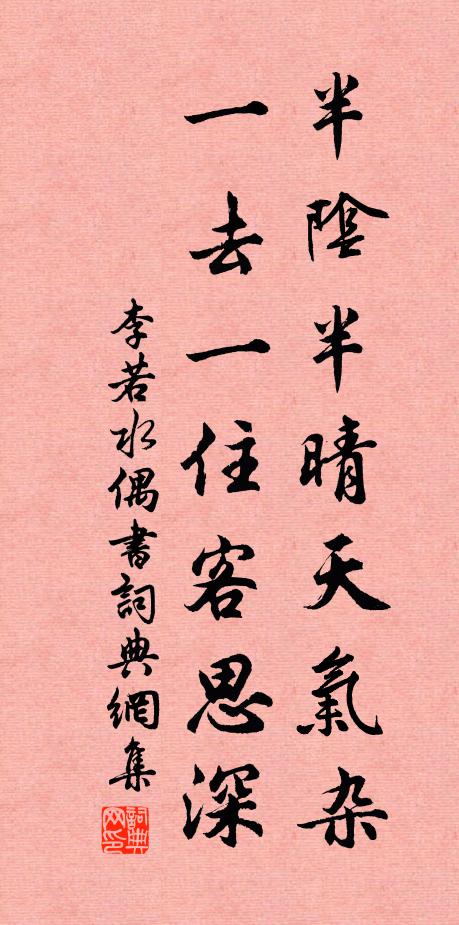 半陰半晴天氣杂
一去一住客思深
李若水偶書詞典網集
詞典
网印